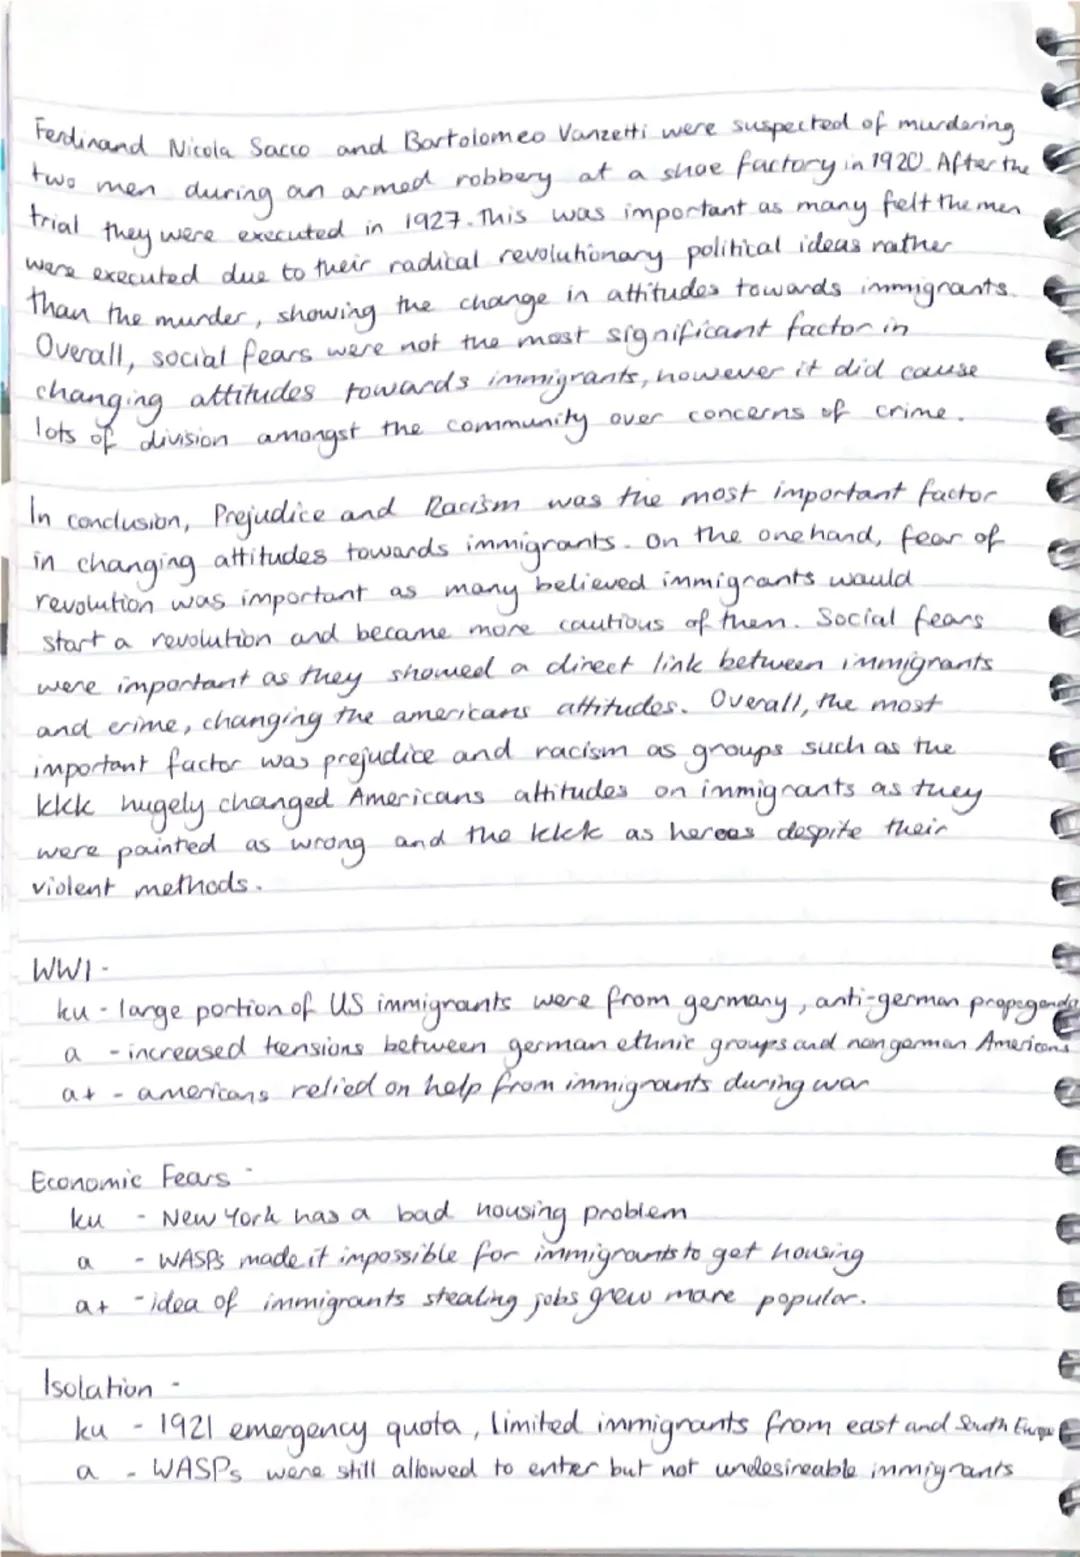 Ferdinand Nicola Sacco and Bartolomeo Vanzetti were suspected of murdering
two men during an armed robbery at a shoe factory in 1920. After the
trial they were executed in 1927. This was important as many felt the men
were executed due to their radical revolutionary political ideas rather
than the murder, showing the change in attitudes towards immigrants.
Overall, social fears were not the most significant factor in
changing attitudes towards immigrants, however it did cause
lots of division amongst the community over concerns of crime.
In conclusion, Prejudice and Racism was the most important factor
in changing attitudes towards immigrants. On the one hand, fear of
revolution was important as many believed immigrants would
start a revolution and became more cautious of them. Social fears
were important as they showed a direct link between immigrants
and crime, changing the americans attitudes. Overall, the most
important factor was prejudice and racism as groups such as the
kkk hugely changed Americans attitudes on immigrants as they
were painted as wrong and the kkk as heroes despite their
violent methods.
WW1 -
ku - large portion of US immigrants were from germany, anti-german propeganda
a - increased tensions between german ethnic groups and non german Americans
a+ - americans relied on help from immigrants during war
Economic Fears -
ku - New York has a bad housing problem
a - WASPs made it impossible for immigrants to get housing
a+ - idea of immigrants stealing jobs grew more popular.
Isolation -
ku - 1921 emergency quota, limited immigrants from east and South Europe
a - WASPs were still allowed to enter but not undesireable immigrants